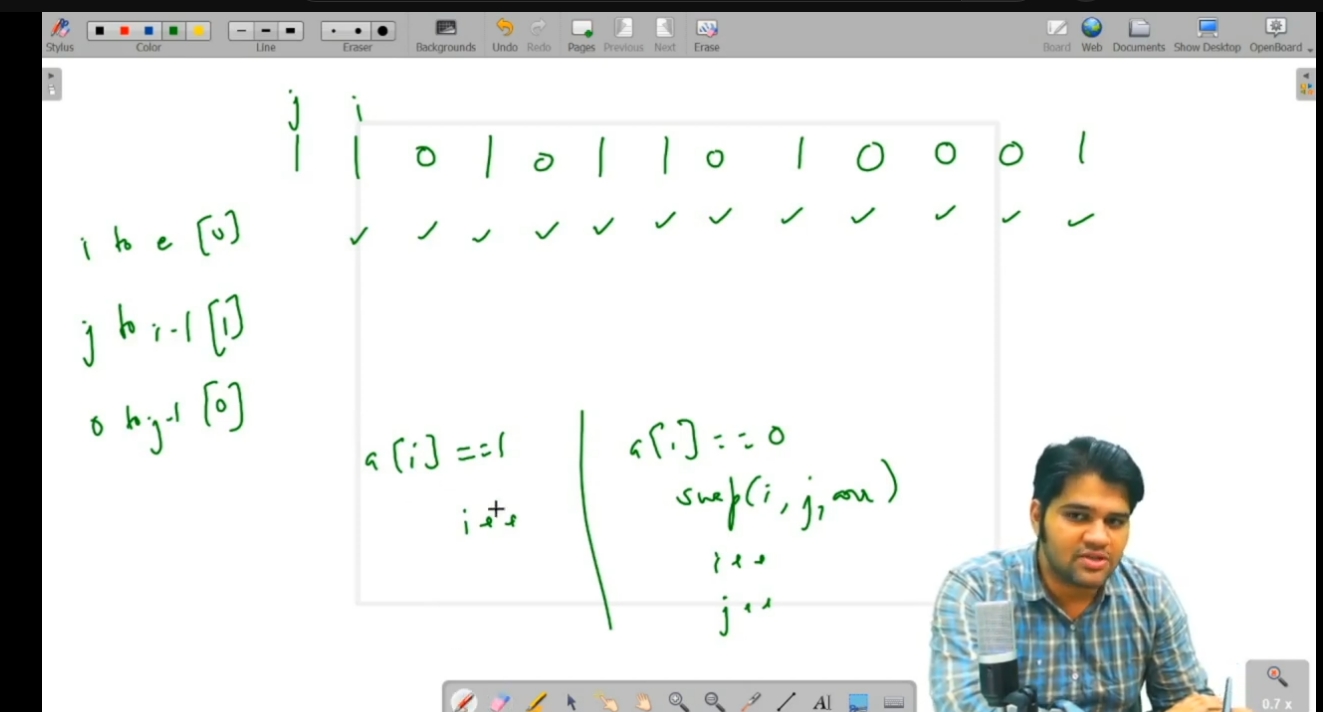 Stylus Color Line Eraser Backgrounds Undo Redo Pages Previous Next Erase Board Web Documents Show Desktop OpenBoard
j i
1 1 0 1 0 1 1 0 1 0 0 0 1
i to e [u]
j to i-1 [1]
0 to j-1 [0]
a[i] ==1
a[i] == 0
i++
swap(i, j, arr)
i++
j++
AI
0.7 x